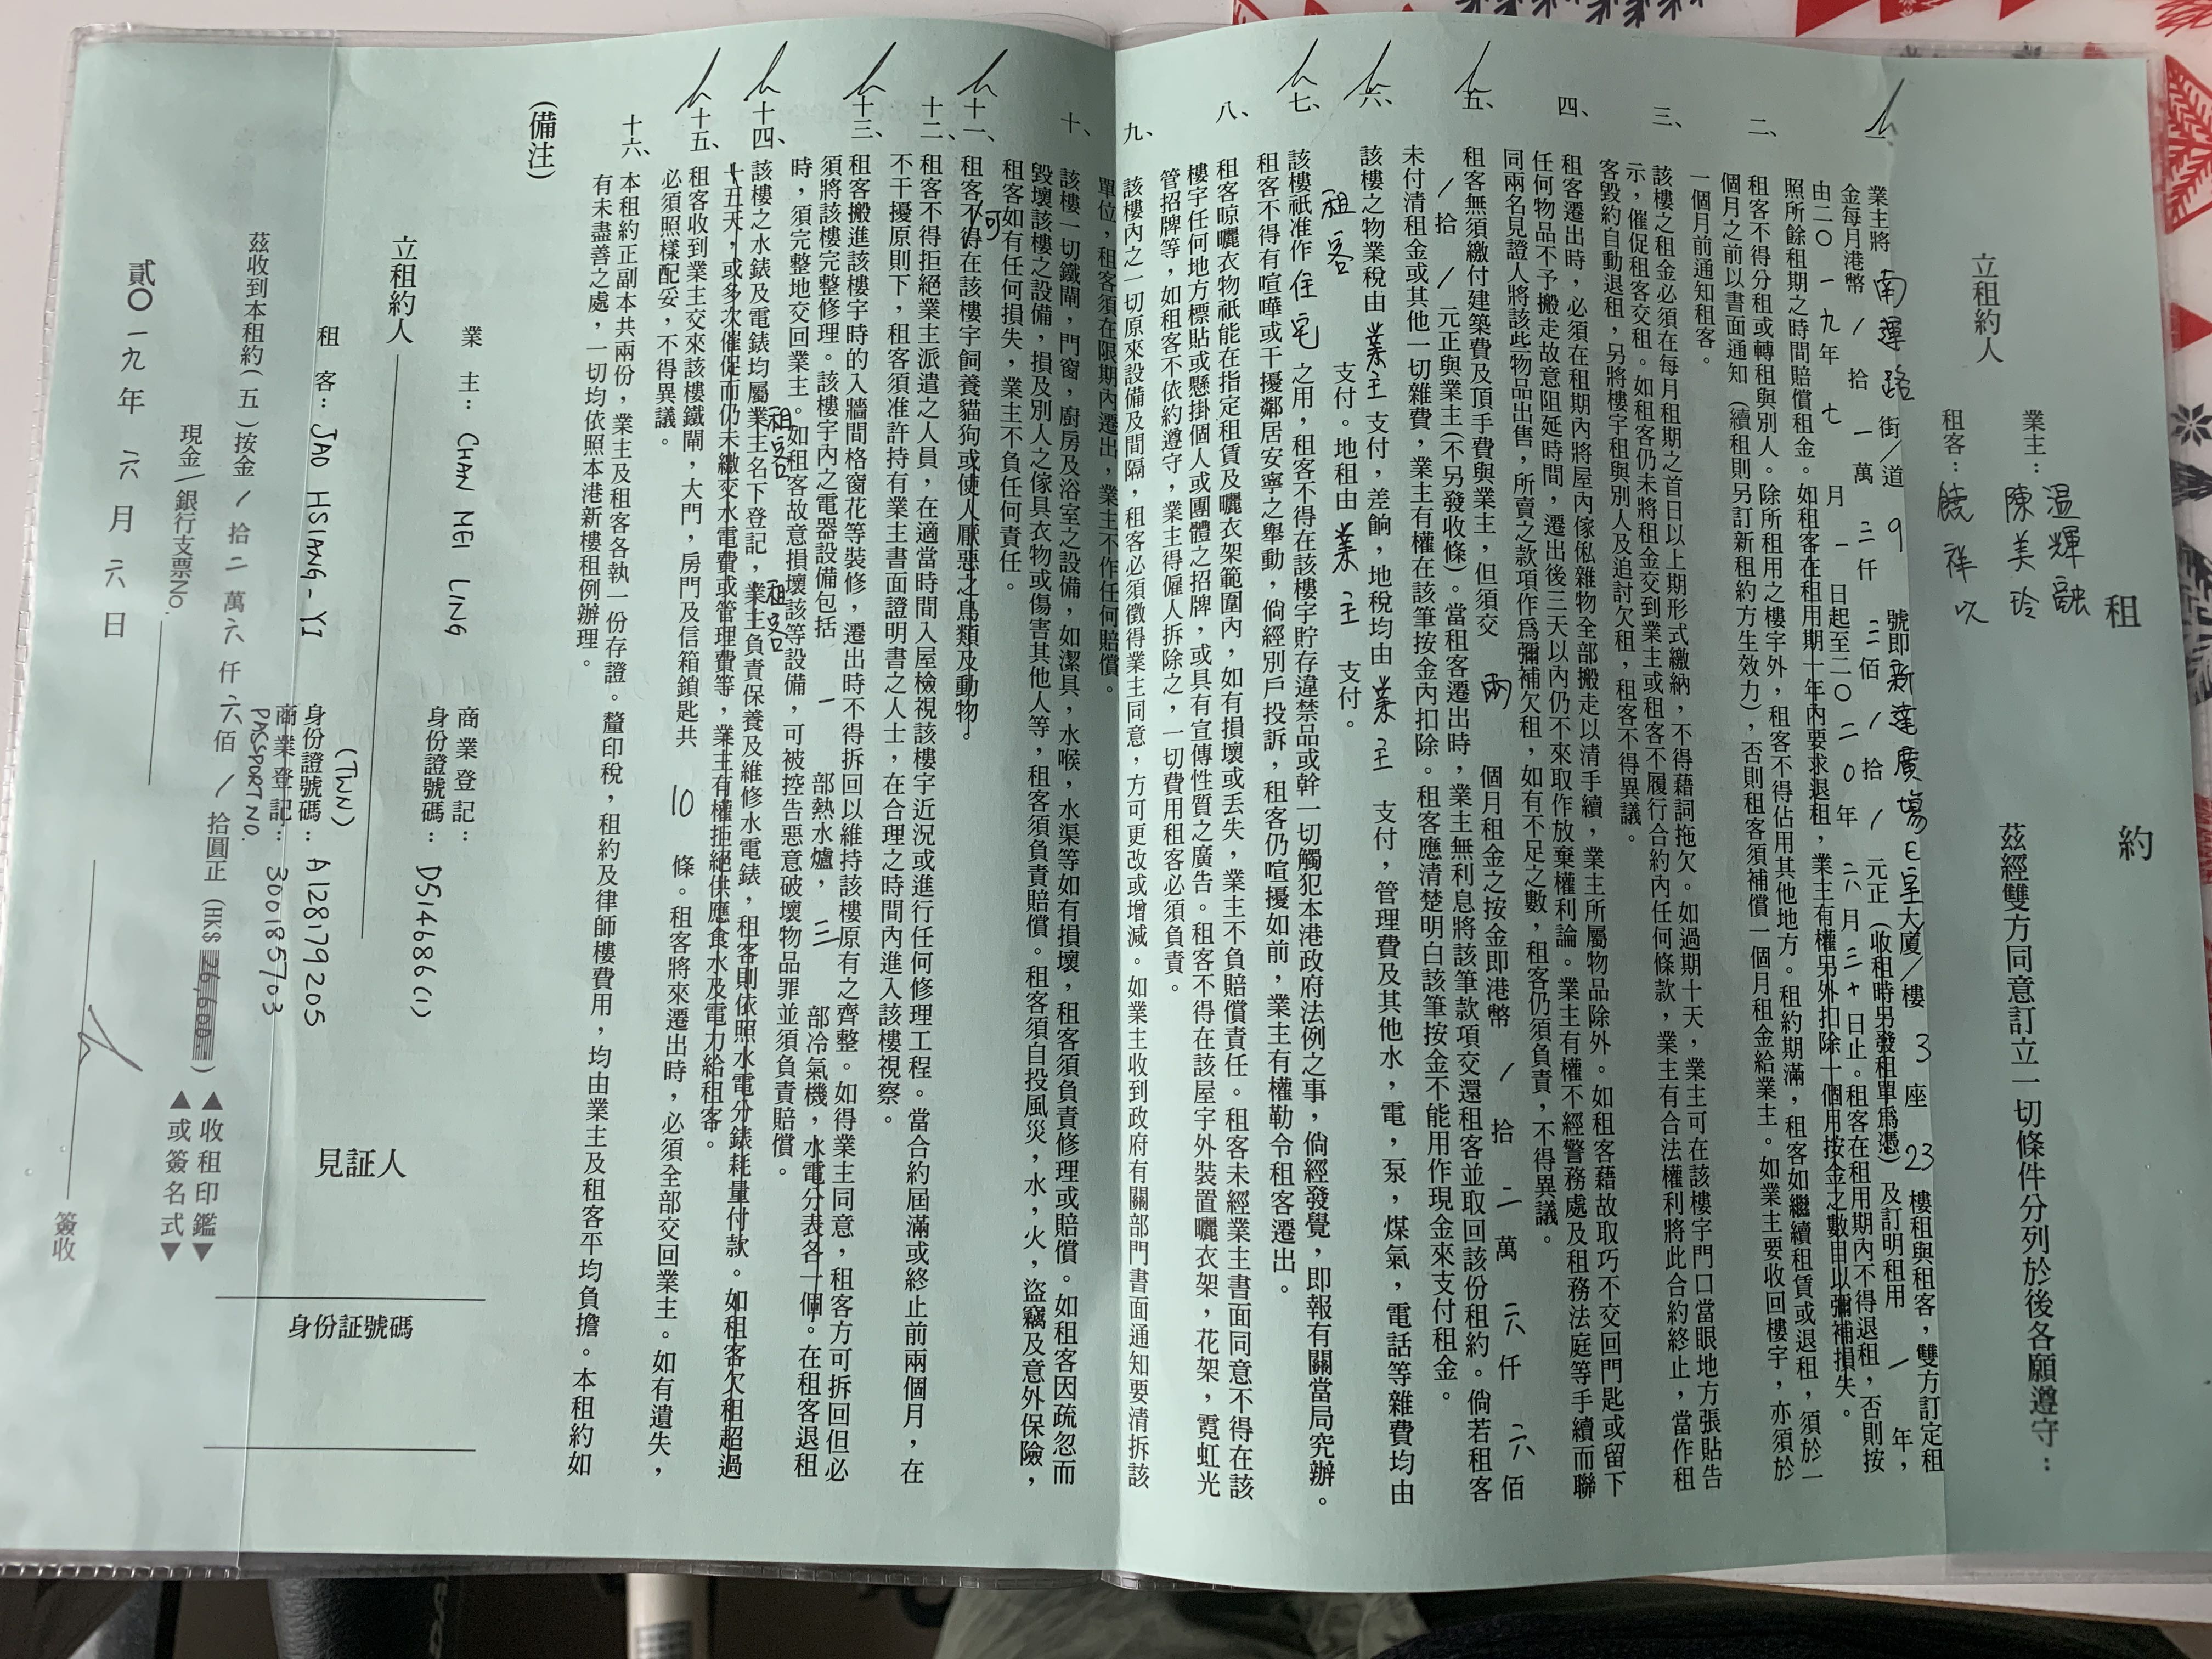 租約
立租約人
業主：溫輝融
陳美玲
租客：饒祥以
茲經雙方同意訂立一切條件分列於後各願遵守：
一、業主將 南運路 街／道 9 號即 新達廣場E呈 大廈／樓 3 座 23 樓租與租客，雙方訂定租
金每月港幣 / 拾 一 萬 三 仟 三 佰 / 拾 / 元正（收租時另發租單爲憑）及訂明租用 一 年，
由二〇一九年 七 月 一 日起至二〇二〇年 六 月 三十 日止。租客在租用期內不得退租，否則按
照所餘租期之時間賠償租金。如租客在租用期一年內要求退租，業主有權另外扣除一個月按金之數目以彌補損失。
二、租客不得分租或轉租與別人。除所租用之樓宇外，租客不得佔用其他地方。租約期滿，租客如繼續租賃或退租，須於一
個月之前以書面通知（續租則另訂新租約方生效力），否則租客須補償一個月租金給業主。如業主要收回樓宇，亦須於
一個月前通知租客。
三、該樓之租金必須在每月租期之首日以上期形式繳納，不得藉詞拖欠。如過期十天，業主可在該樓宇門口當眼地方張貼告
示，催促租客交租。如租客仍未將租金交到業主或租客不履行合約內任何條款，業主有合法權利將此合約終止，當作租
客毀約自動退租，另將樓宇租與別人及追討欠租，租客不得異議。
四、租客遷出時，必須在租期內將屋內傢俬雜物全部搬走以清手續，業主所屬物品除外。如租客藉故取巧不交回門匙或留下
任何物品不予搬走故意阻延時間，遷出後三天以內仍不來取作放棄權利論。業主有權不經警務處及租務法庭等手續而聯
同兩名見證人將該些物品出售，所賣之款項作爲彌補欠租，如有不足之數，租客仍須負責，不得異議。
五、租客無須繳付建築費及頂手費與業主，但須交 兩 個月租金之按金即港幣 / 拾 二 萬 六 仟 六 佰
/ 拾 / 元正與業主（不另發收條）。當租客遷出時，業主無利息將該筆款項交還租客並取回該份租約。倘若租客
未付清租金或其他一切雜費，業主有權在該筆按金內扣除。租客應清楚明白該筆按金不能用作現金來支付租金。
六、該樓之物業稅由 業主 支付，差餉，地稅均由 業主 支付，管理費及其他水，電，泵，煤氣，電話等雜費均由
租客 支付。地租由 業主 支付。
七、該樓祇准作 住宅 之用，租客不得在該樓宇貯存違禁品或幹一切觸犯本港政府法例之事，倘經發覺，即報有關當局究辦。
租客不得有喧嘩或干擾鄰居安寧之舉動，倘經別戶投訴，租客仍喧擾如前，業主有權勒令租客遷出。
八、租客晾曬衣物祇能在指定租賃及曬衣架範圍內，如有損壞或丟失，業主不負賠償責任。租客未經業主書面同意不得在該
樓宇任何地方標貼或懸掛個人或團體之招牌，或具有宣傳性質之廣告。租客不得在該屋宇外裝置曬衣架，花架，霓虹光
管招牌等，如租客不依約遵守，業主得僱人拆除之，一切費用租客必須負責。
九、該樓內之一切原來設備及間隔，租客必須徵得業主同意，方可更改或增減。如業主收到政府有關部門書面通知要清拆該
單位，租客須在限期內遷出，業主不作任何賠償。
十、該樓一切鐵閘，門窗，廚房及浴室之設備，如潔具，水喉，水渠等如有損壞，租客須負責修理或賠償。如租客因疏忽而
毀壞該樓之設備，損及別人之傢具衣物或傷害其他人等，租客須負責賠償。租客須自投風災，水，火，盜竊及意外保險，
租客如有任何損失，業主不負任何責任。
十一、租客不得 可 在該樓宇飼養貓狗或使人厭惡之鳥類及動物。
十二、租客不得拒絕業主派遣之人員，在適當時間入屋檢視該樓宇近況或進行任何修理工程。當合約屆滿或終止前兩個月，在
不干擾原則下，租客須准許持有業主書面證明書之人士，在合理之時間內進入該樓視察。
十三、租客搬進該樓宇時的入牆間格窗花等裝修，遷出時不得拆回以維持該樓原有之齊整。如得業主同意，租客方可拆回但必
須將該樓完整修理。該樓宇內之電器設備包括 一 部熱水爐，三 部冷氣機，水電分表各一個。在租客退租
時，須完整地交回業主。如租客故意損壞該等設備，可被控告惡意破壞物品罪並須負責賠償。
十四、該樓之水錶及電錶均屬業主 租客 名下登記，業主 租客 負責保養及維修水電錶，租客則依照水電分錶耗量付款。如租客欠租超過
十五天，或多次催促而仍未繳交水電費或管理費等，業主有權拒絕供應食水及電力給租客。
十五、租客收到業主交來該樓鐵閘，大門，房門及信箱鎖匙共 10 條。租客將來遷出時，必須全部交回業主。如有遺失，
必須照樣配妥，不得異議。
十六、本租約正副本共兩份，業主及租客各執一份存證。釐印稅，租約及律師樓費用，均由業主及租客平均負擔。本租約如
有未盡善之處，一切均依照本港新樓租例辦理。
（備注）
業主：CHAN MEI LING 商業登記：
身份證號碼：D514686(1)
立租約人
見証人
身份証號碼
租客：JAO HSIANG-YI (TWN) 身份證號碼：A128179205
商業登記：PASSPORT NO. 300185703
茲收到本租約（五）按金 / 拾 二 萬 六 仟 六 佰 / 拾圓正 (HK$ 26,600.-) ▲收租印鑑▼
現金／銀行支票No. ▲或簽名式▼
貳〇一九年 六 月 六 日
簽收